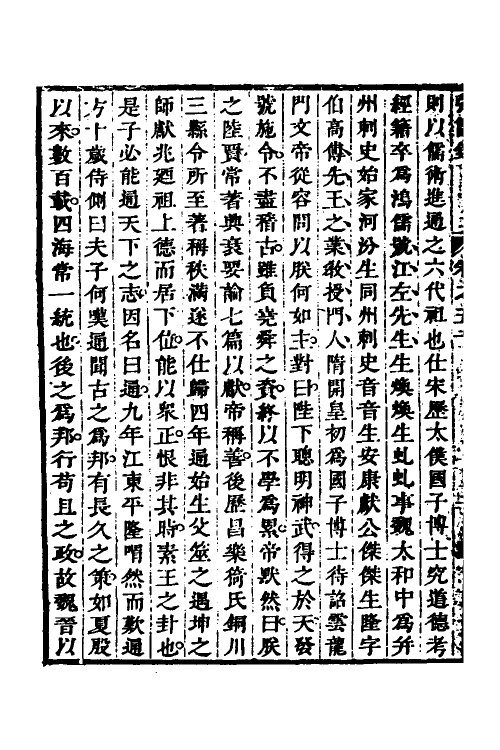 則以儒術進通之六代祖也仕宋歷太僕國子博士究道德考
經籍卒爲鴻儒號江左先生生煥煥生虬虬事魏太和中爲幷
州刺史始家河汾生同州刺史音音生安康獻公傑傑生隆字
伯高傳先王之業敎授門人隋開皇初爲國子博士待詔雲龍
門文帝從容問以朕何如主對曰陛下聰明神武得之於天發
號施令不盡稽古雖負堯舜之資終以不學爲累帝默然曰朕
之陸賢常者興衰要論七篇以獻帝稱善後歷昌樂猗氏銅川
三縣令所至著稱秩滿遂不仕歸四年通始生父筮之遇坤之
師獻兆廼祖上德而居下位能以衆正恨非其時素王之卦也
是子必能通天下之志因名曰通九年江東平隆喟然而歎通
方十歲侍側曰夫子何嘆通聞古之爲邦有長久之策如夏殷
以來數百載四海常一統也後之爲邦行苟且之政故魏晉以